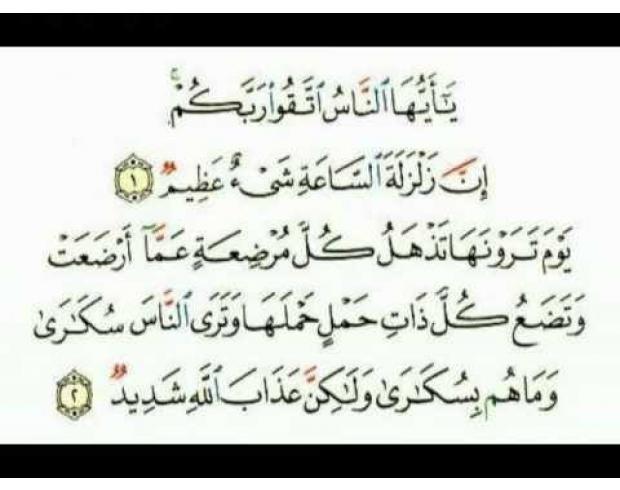 يَٰٓأَيُّهَا ٱلنَّاسُ ٱتَّقُوا۟ رَبَّكُمْ ۚ
إِنَّ زَلْزَلَةَ ٱلسَّاعَةِ شَىْءٌ عَظِيمٌ ١
يَوْمَ تَرَوْنَهَا تَذْهَلُ كُلُّ مُرْضِعَةٍ عَمَّآ أَرْضَعَتْ
وَتَضَعُ كُلُّ ذَاتِ حَمْلٍ حَمْلَهَا وَتَرَى ٱلنَّاسَ سُكَٰرَىٰ
وَمَا هُم بِسُكَٰرَىٰ وَلَٰكِنَّ عَذَابَ ٱللَّهِ شَدِيدٌ ٢